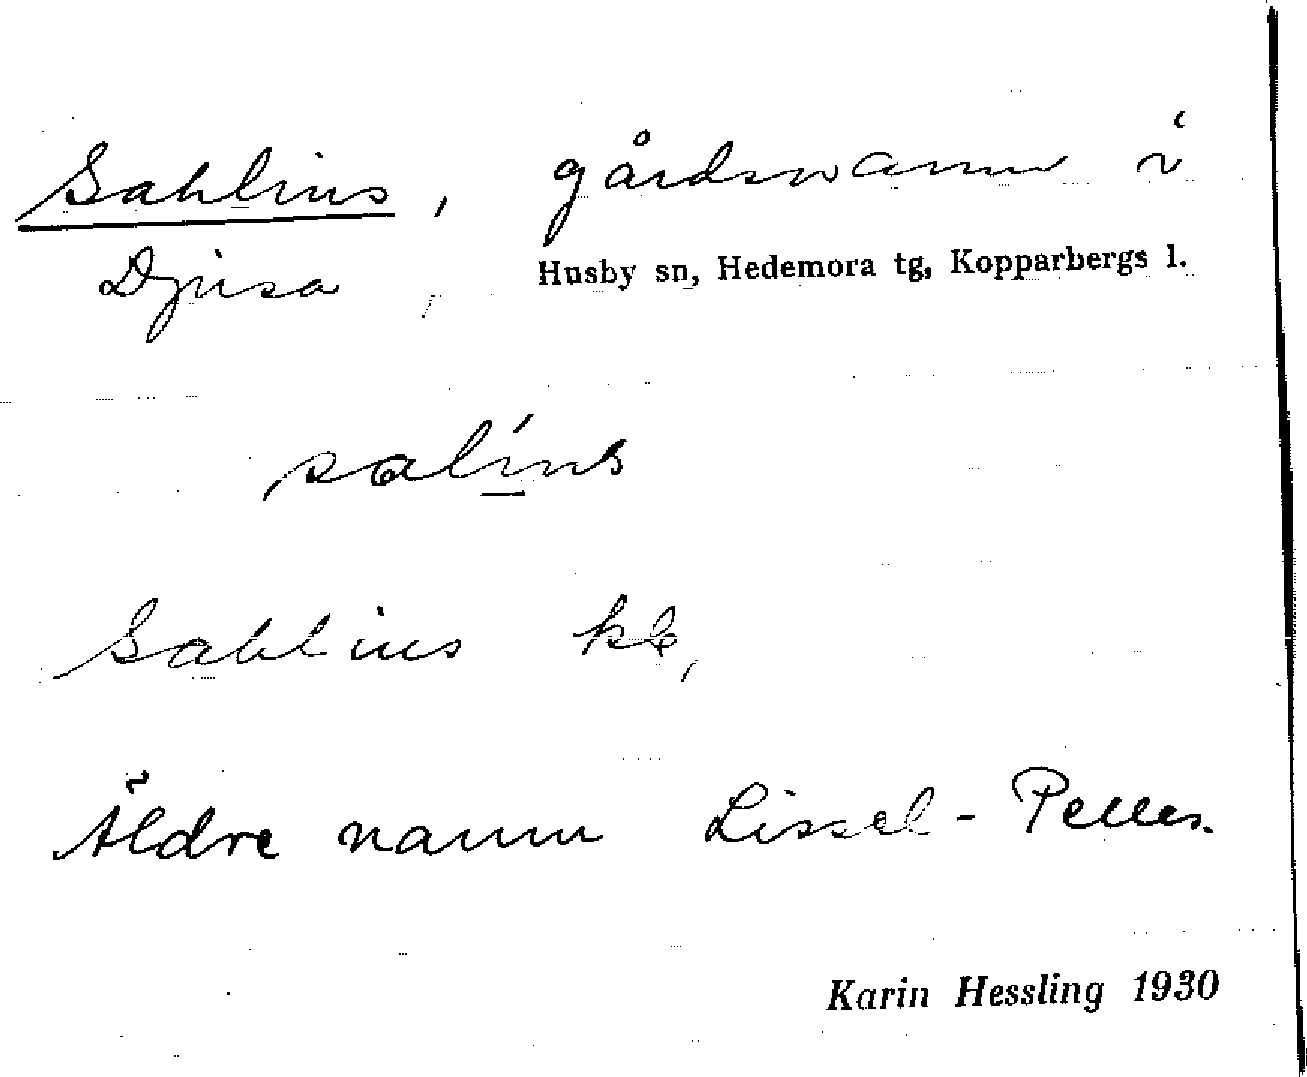 Sahlins, gårdsnamn i
Djusa, Husby sn, Hedemora tg, Kopparbergs l.
salíns
Sahlins kb,
Äldre namn Lissel-Pelles.
Karin Hessling 1930